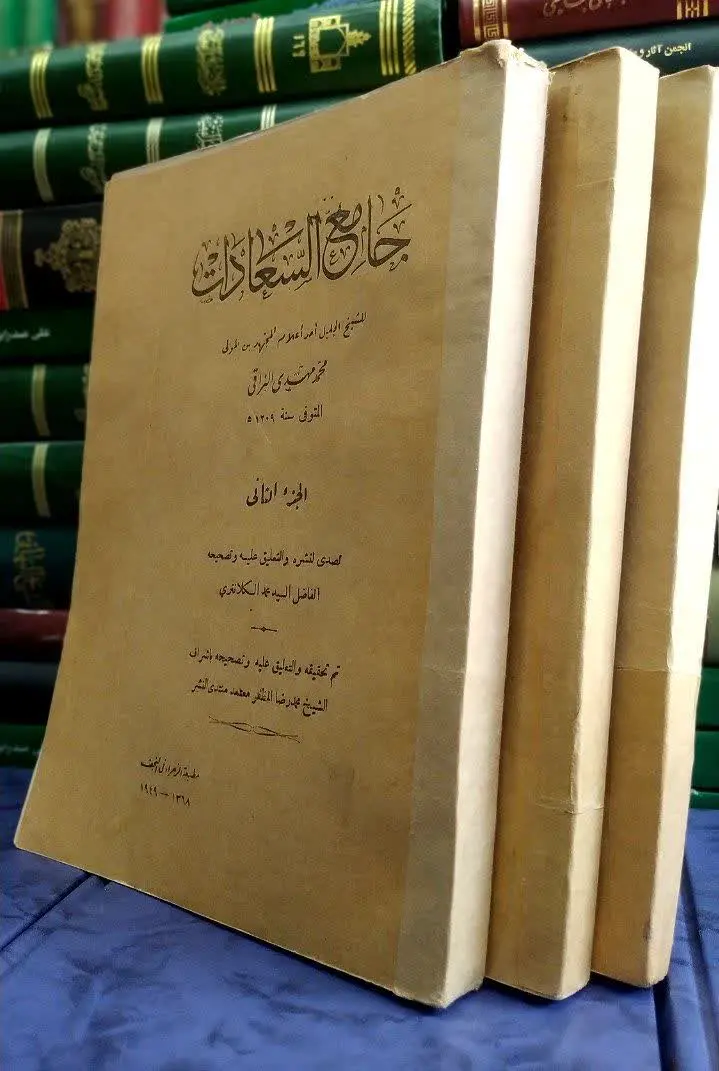 جامع السعادات
للشيخ الجليل احد أعلام المجتهدين المولى
محمد مهدي النراقي
المتوفى سنة ١٢٠٩ ه
الجزء الثاني
تصدى لنشره والتعليق عليه وتصحيحه
الفاضل السيد محمد الكلانتري
تم تحقيقه والتعليق عليه وتصحيحه باشراف
الشيخ محمد رضا المظفر معتمد منتدى النشر
مطبعة الزهراء في النجف
١٣٦٨ — ١٩٤٩
انجمن آثار و